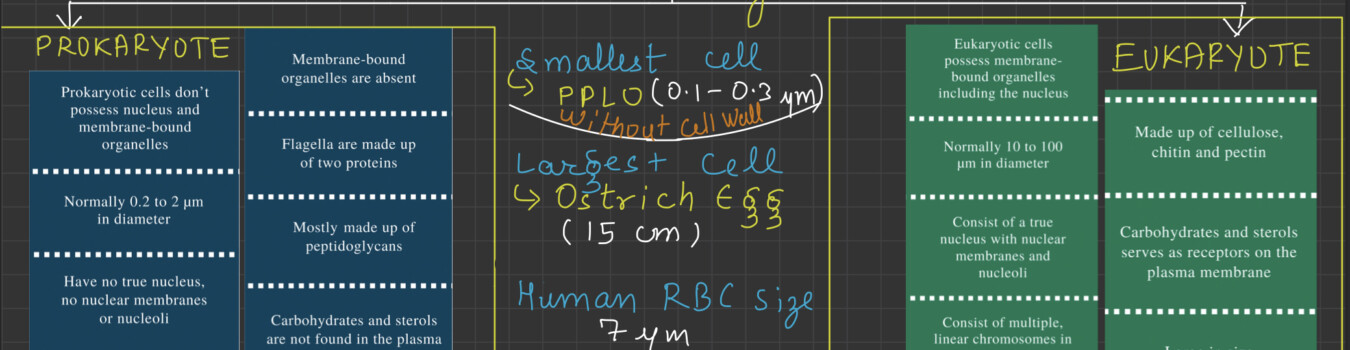 PROKARYOTE
Prokaryotic cells don't
possess nucleus and
membrane-bound
organelles
Normally 0.2 to 2 μm
in diameter
Have no true nucleus,
no nuclear membranes
or nucleoli
Membrane-bound
organelles are absent
Flagella are made up
of two proteins
Mostly made up of
peptidoglycans
Carbohydrates and sterols
are not found in the plasma
Smallest cell
PPLO (0.1 - 0.3 ym)
Without cell wall
Largest Cell
Ostrich Egg
(15 cm)
Human RBC size
7 ym
Eukaryotic cells
possess membrane-
bound organelles
including the nucleus
Normally 10 to 100
μm in diameter
Consist of a true
nucleus with nuclear
membranes and
nucleoli
Consist of multiple,
linear chromosomes in
EUKARYOTE
Made up of cellulose,
chitin and pectin
Carbohydrates and sterols
serves as receptors on the
plasma membrane